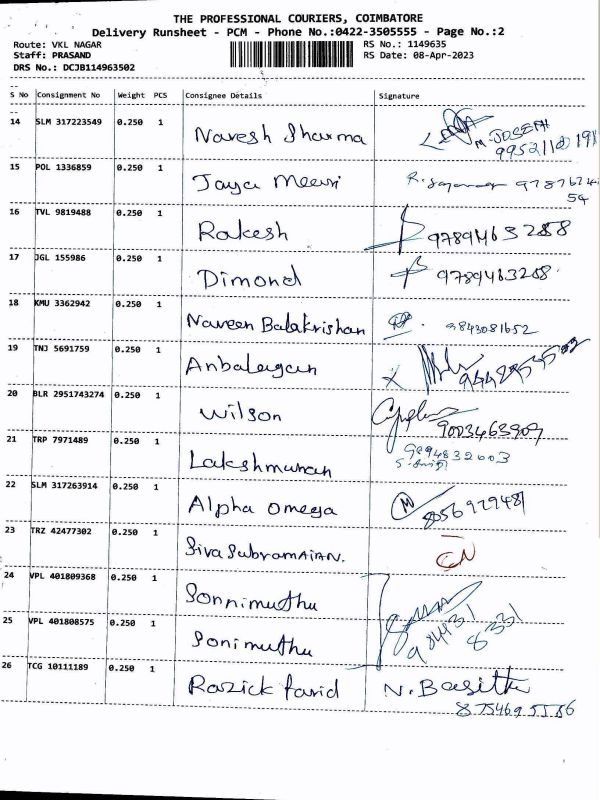 THE PROFESSIONAL COURIERS, COIMBATORE
Delivery Runsheet - PCM - Phone No.:0422-3505555 - Page No.:2
Route: VKL NAGAR RS No.: 1149635
Staff: PRASAND RS Date: 08-Apr-2023
DRS No.: DCJB114963502
S No Consignment No Weight PCS Consignee Details Signature
14 SLM 317223549 0.250 1 Naresh Sharma M. JOSEPH
15 POL 1336859 0.250 1 Jaya Meeri
54
16 TVL 9819488 0.250 1 Rakesh 9789463288
17 JGL 155986 0.250 1 Dimond 9789463288
18 KMU 3362942 0.250 1 Naveen Balakrishan 9843081652
19 TNJ 5691759 0.250 1 Anbalagan
20 BLR 2951743274 0.250 1 Wilson 9003463909
21 TRP 7971489 0.250 1 Lakshmanan 9894832003
22 SLM 317263914 0.250 1 Alpha omega M 8056929481
23 TRZ 42477302 0.250 1 Siva SubramAIAN. CN
24 VPL 401809368 0.250 1 Sonnimuthu
25 VPL 401808575 0.250 1 Sonimuthu 984431 8331
26 TCG 10111189 0.250 1 Razick farid N. Basith
8754695556